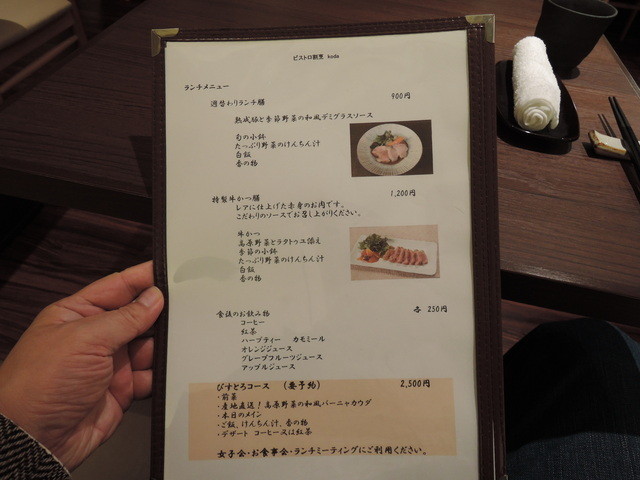 ビストロ割烹 koda
ランチメニュー
週替わりランチ膳 900円
熟成豚と季節野菜の和風デミグラスソース
旬の小鉢
たっぷり野菜のけんちん汁
白飯
香の物
特製牛かつ膳 1,200円
レアに仕上げた赤身のお肉です。
こだわりのソースでお召し上がりください。
牛かつ
高原野菜とラタトゥユ添え
季節の小鉢
たっぷり野菜のけんちん汁
白飯
香の物
食後のお飲み物 各 250円
コーヒー
紅茶
ハーブティー カモミール
オレンジジュース
グレープフルーツジュース
アップルジュース
びすとろコース (要予約) 2,500円
・前菜
・産地直送!高原野菜の和風バーニャカウダ
・本日のメイン
・ご飯、けんちん汁、香の物
・デザート コーヒー又は紅茶
女子会・お食事会・ランチミーティングにご利用ください。